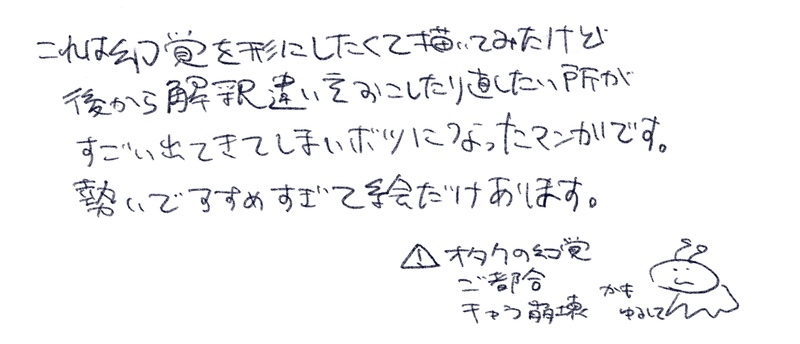 これは幻覚を形にしたくて描いてみたけど
後から解釈違いをおこしたり直したい所が
すごい出てきてしまいボツになったマンガです。
勢いですすめすぎて絵だけあります。
オタクの幻覚
ご都合
キャラ崩壊 かも
ゆるして